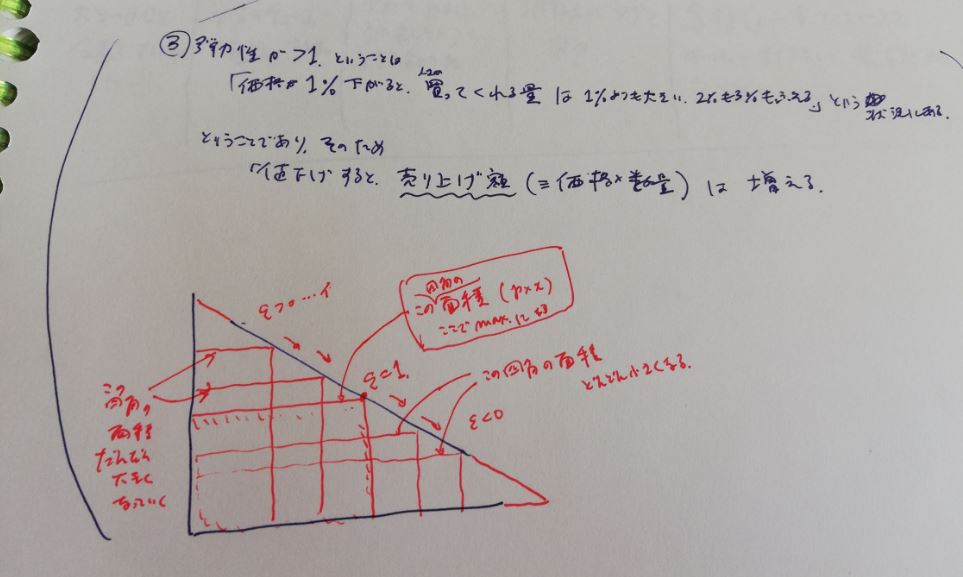 ③ 弾力性が>1. ということは
「価格が1%下がると、買ってくれる量は1%よりも大きい、2%も3%もふえる」という状況にある.
ということであり、そのため
「値下げすると、売り上げ額(≡価格×数量)は増える.
ε>0…イ
この四角の面積(p×x)
ここでmax.になる
ε=1.
この四角の面積
どんどん小さくなる.
ε<0
この
四角の
面積
だんだん
大きく
なっていく